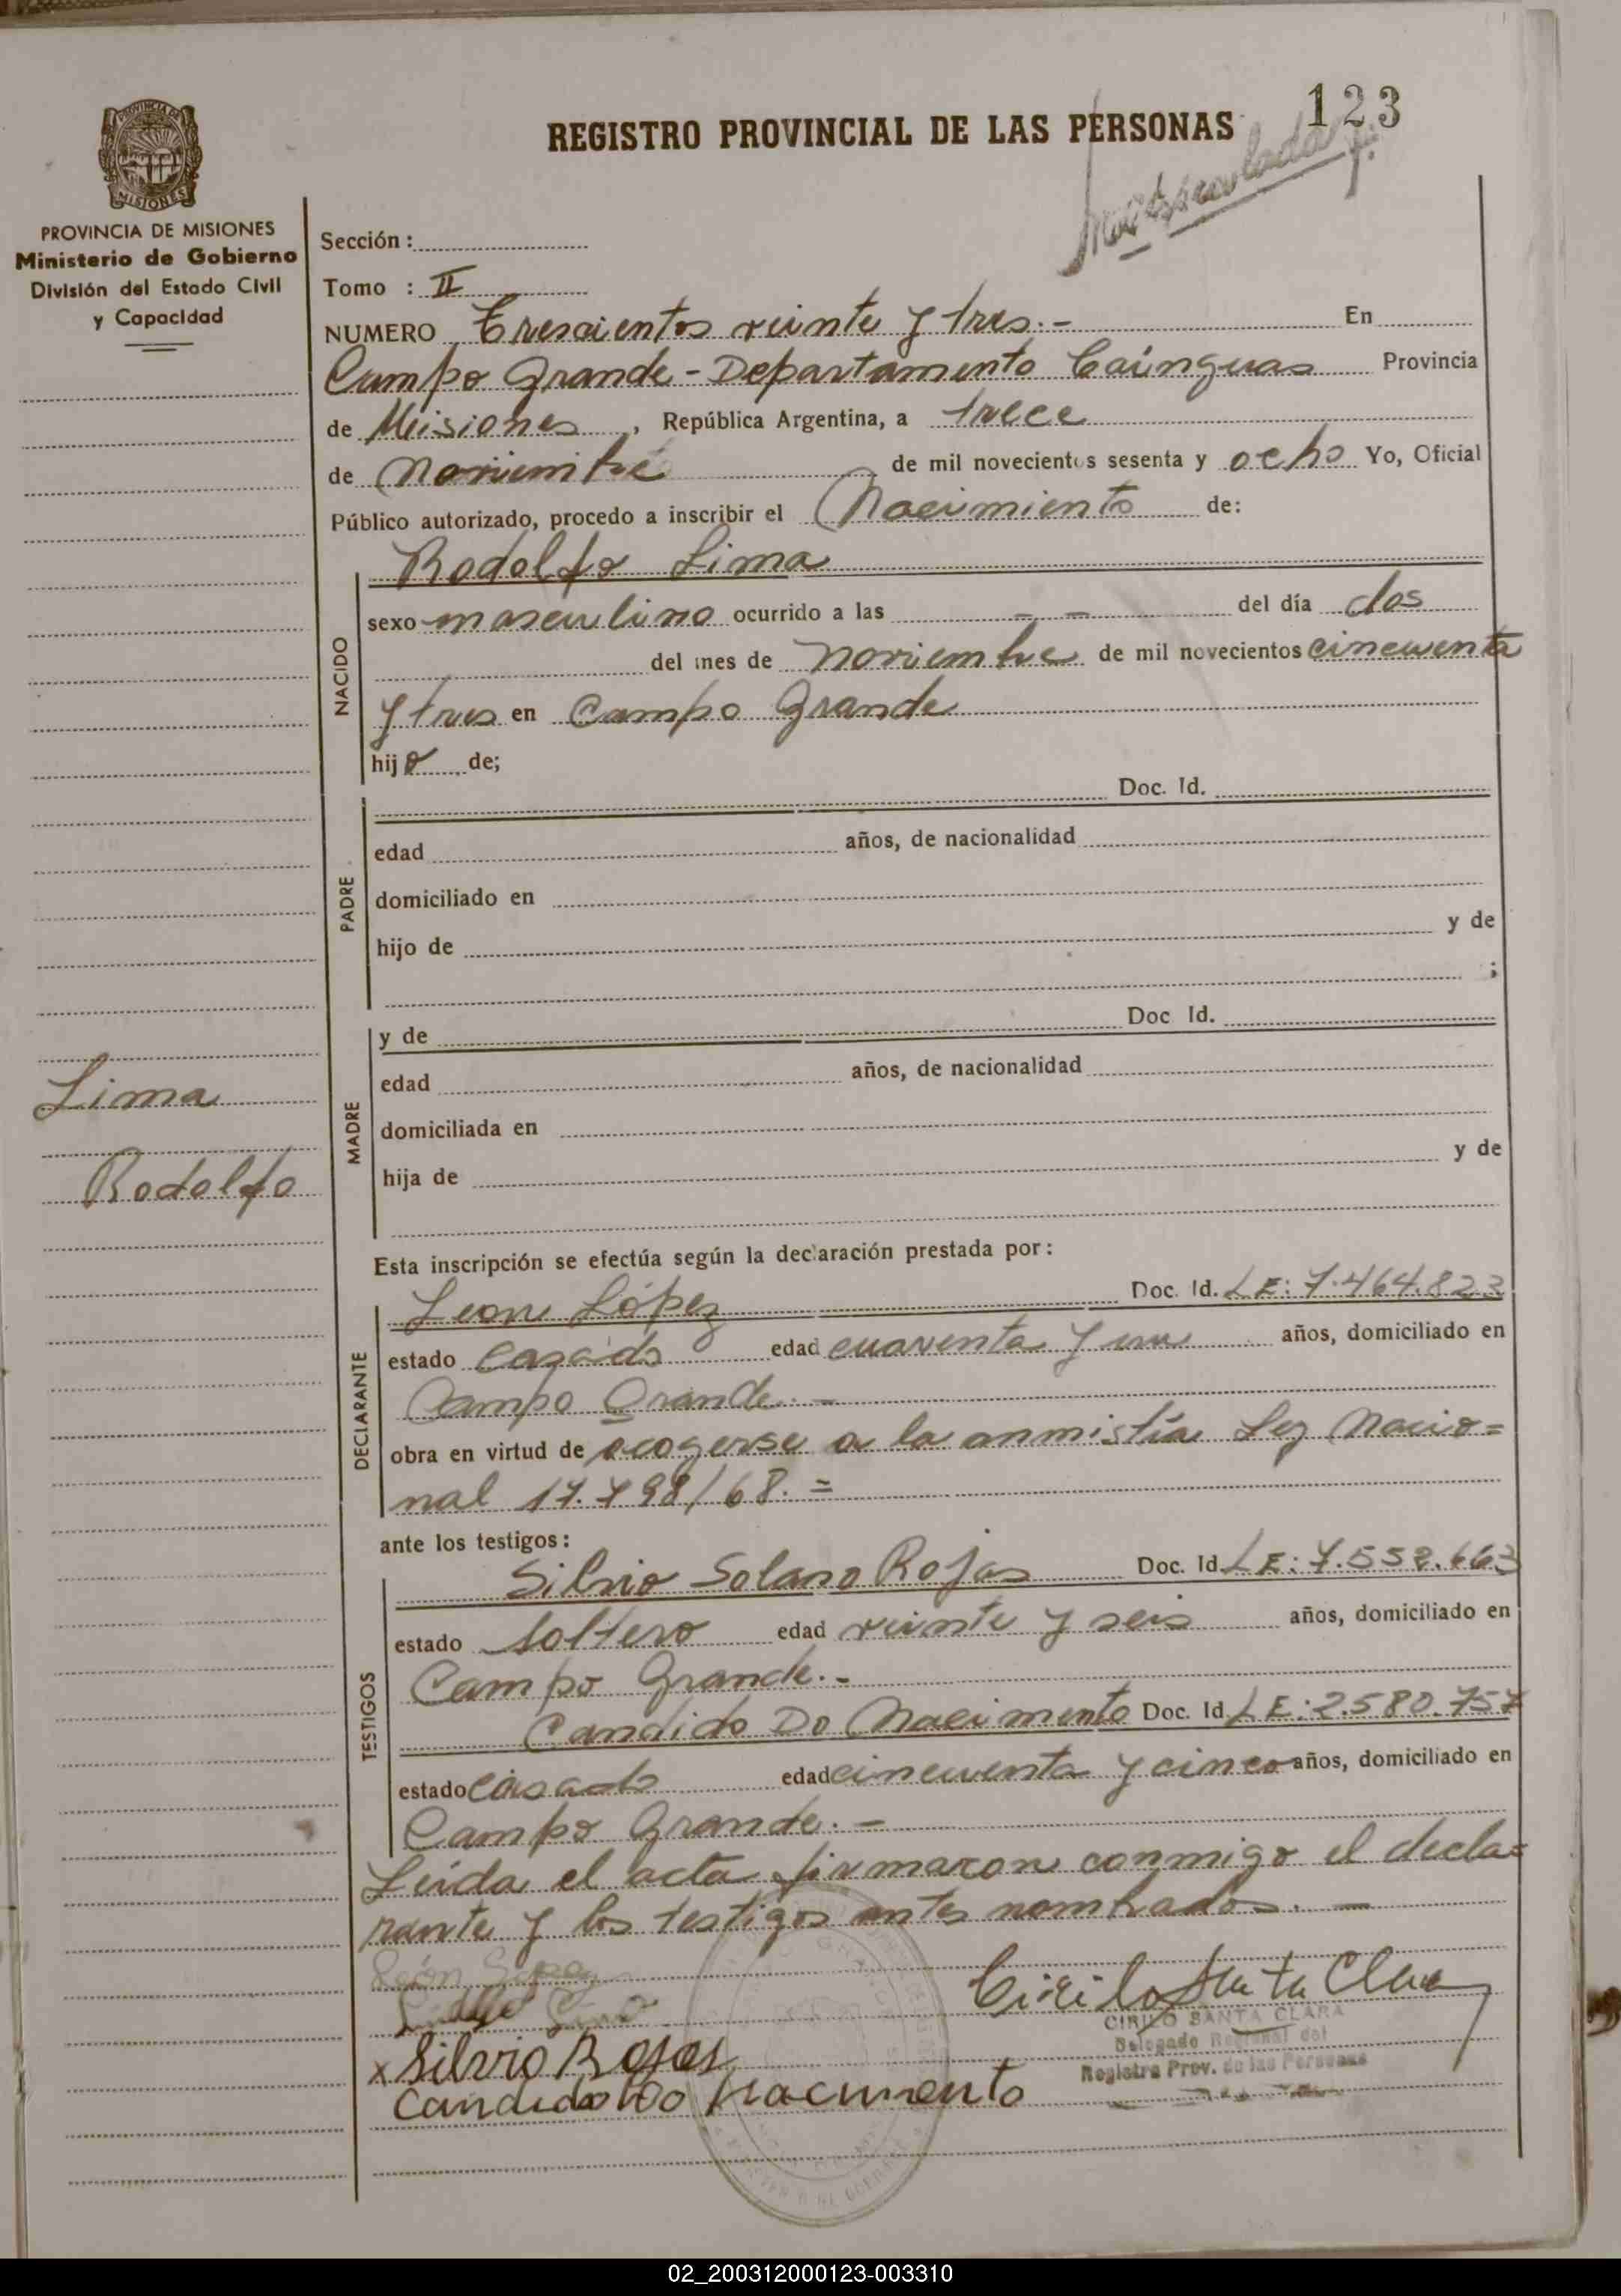 123
REGISTRO PROVINCIAL DE LAS PERSONAS
PROVINCIA DE MISIONES
Ministerio de Gobierno
División del Estado Civil
y Capacidad
Sección :
Tomo : II
NUMERO Trescientos veinte y tres.- En
Campo Grande - Departamento Caínguas Provincia
de Misiones, República Argentina, a trece
de Noviembre de mil novecientos sesenta y ocho Yo, Oficial
Público autorizado, procedo a inscribir el Nacimiento de:
Rodolfo Lima
NACIDO
sexo masculino ocurrido a las - - del día dos
del mes de noviembre de mil novecientos cincuenta
y tres en Campo Grande
hijo de;
PADRE
Doc. Id.
edad años, de nacionalidad
domiciliado en
hijo de y de
;
MADRE
y de Doc. Id.
edad años, de nacionalidad
domiciliada en
hija de y de
Lima
Rodolfo
Esta inscripción se efectúa según la declaración prestada por:
DECLARANTE
Leon López Doc. Id. LE: 7.464.823
estado Casado edad cuarenta y un años, domiciliado en
Campo Grande.-
obra en virtud de acogerse a la anmistía Ley Nacio=
nal 17.798/68.=
ante los testigos:
TESTIGOS
Silvio Solano Rojas Doc. Id. LE: 7.552.663
estado soltero edad veinte y seis años, domiciliado en
Campo Grande.-
Candido Do Nacimento Doc. Id. LE: 2.580.757
estado casado edad cincuenta y cinco años, domiciliado en
Campo Grande.-
Leída el acta firmaron conmigo el decla=
rante y los testigos antes nombrados.-
León Lopez
Cirilo Santa Clara
CIRILO SANTA CLARA
Delegado Regional del
Registro Prov. de las Personas
x Silvio Rojas
Candido Do Nacimento
02_200312000123-003310